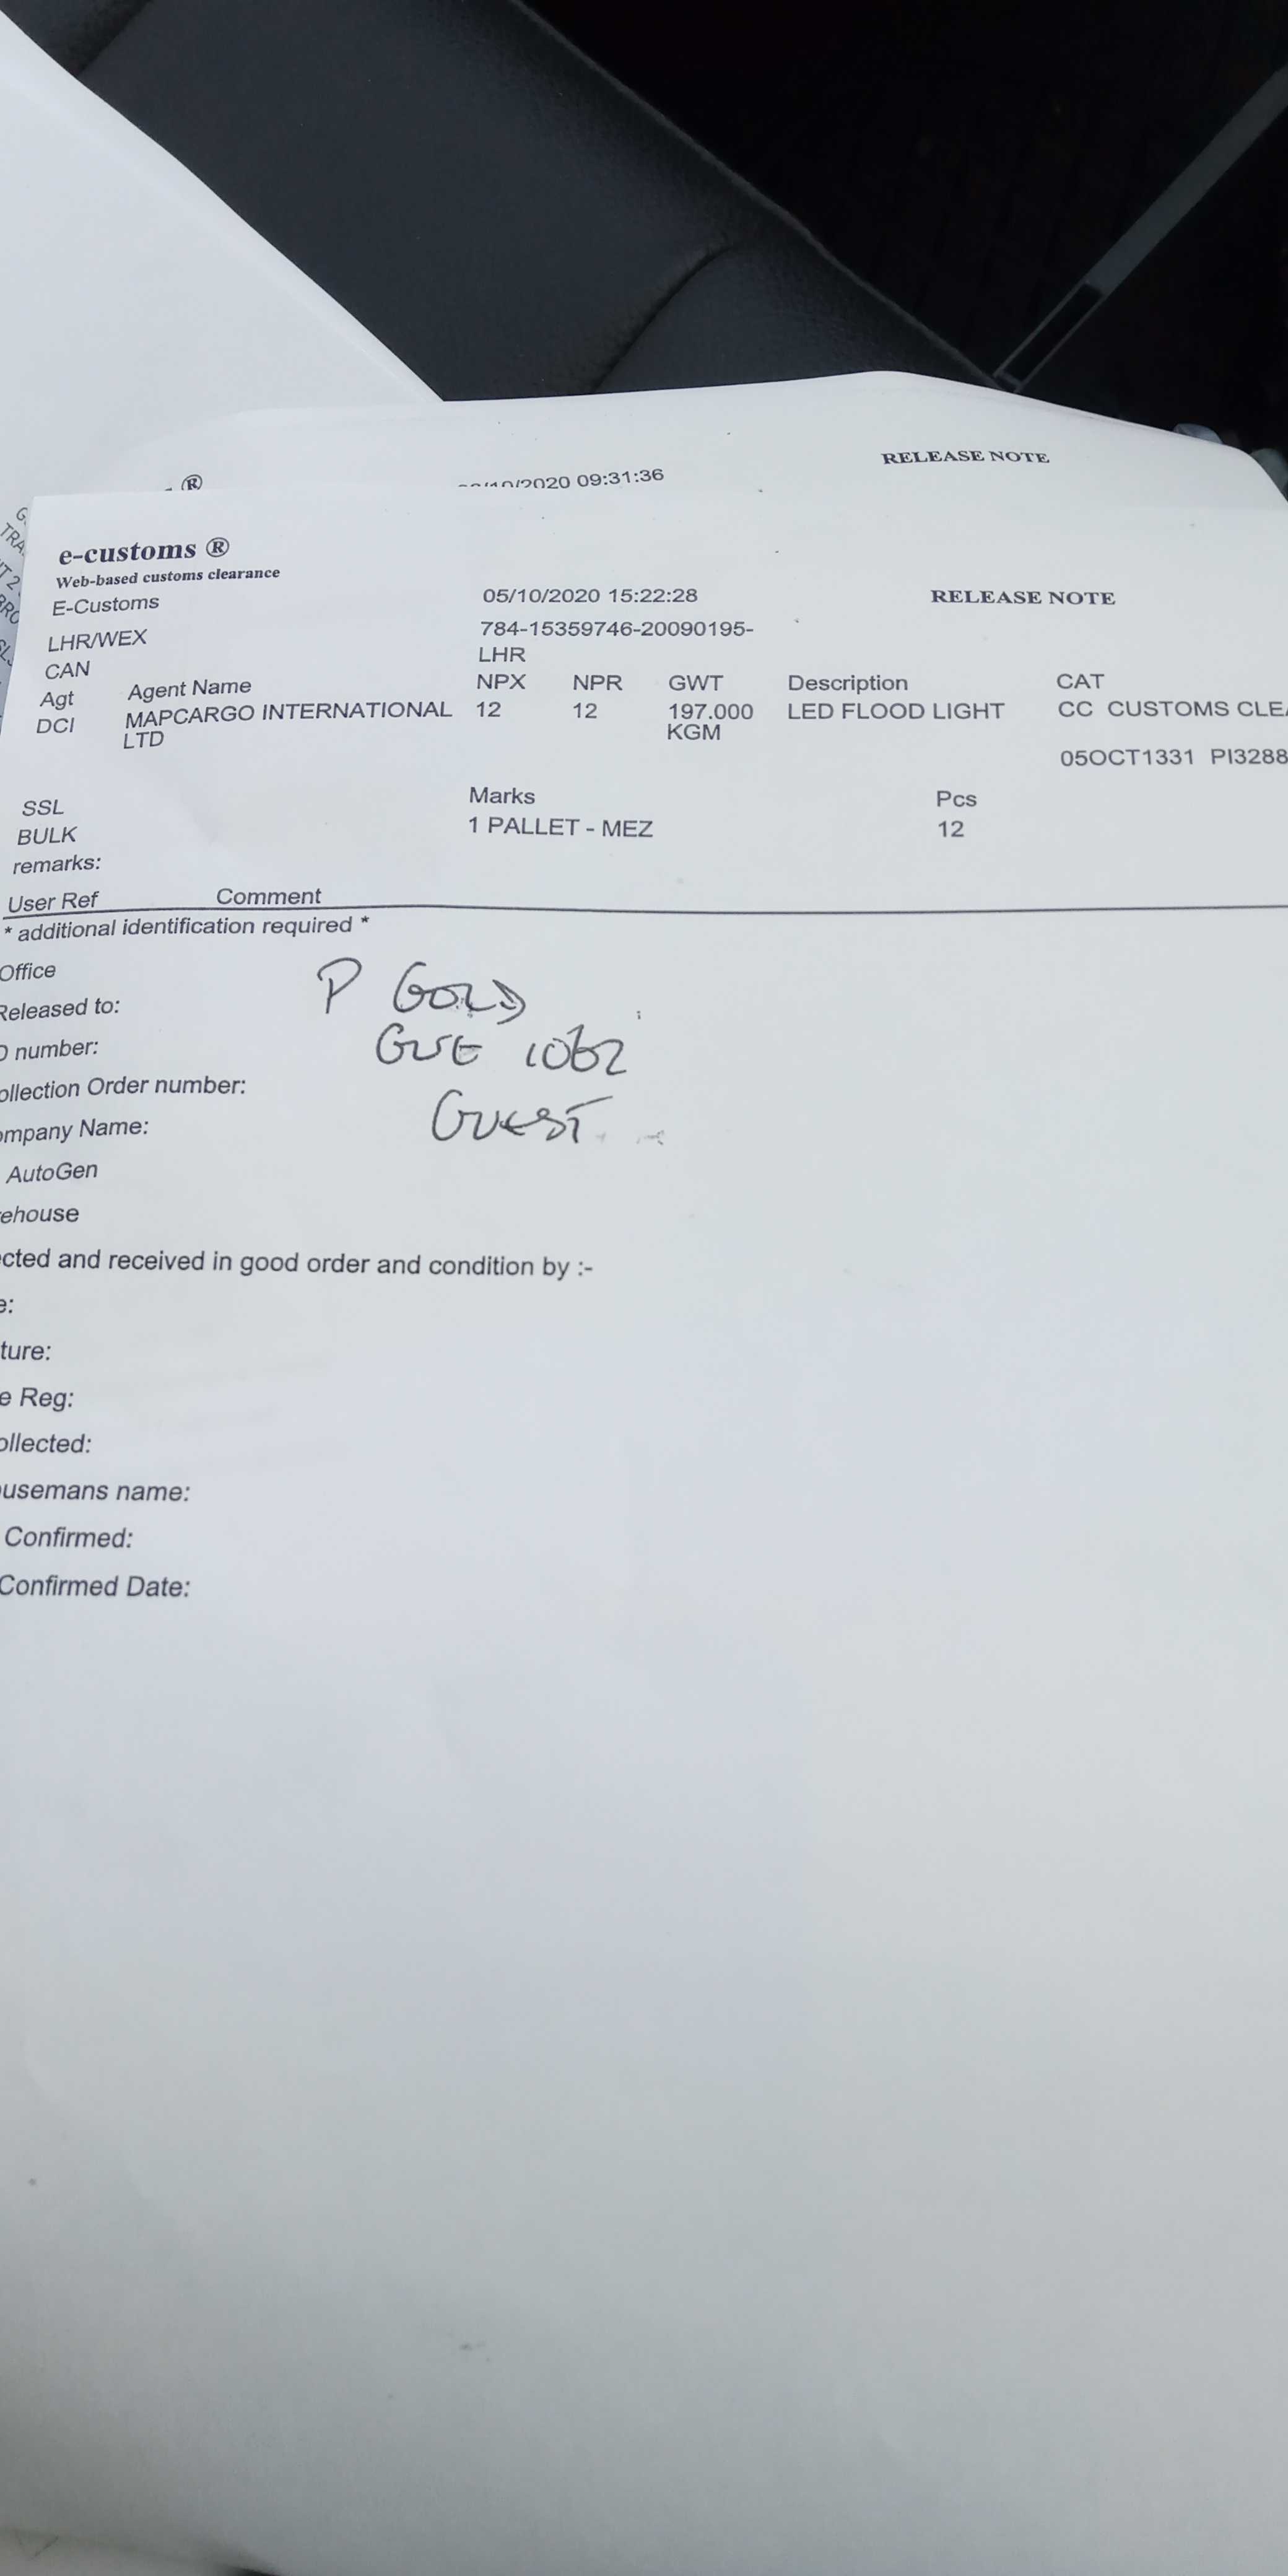 RELEASE NOTE
®
/2020 09:31:36
e-customs ®
Web-based customs clearance
E-Customs
05/10/2020 15:22:28
RELEASE NOTE
LHR/WEX
784-15359746-20090195-
CAN
LHR
Agt Agent Name NPX NPR GWT Description CAT
DCI MAPCARGO INTERNATIONAL 12 12 197.000 LED FLOOD LIGHT CC CUSTOMS CLEA
LTD KGM
05OCT1331 PI3288
SSL Marks Pcs
BULK 1 PALLET - MEZ 12
remarks:
User Ref Comment
* additional identification required *
Office
Released to: P GOLD
D number: GUE 1062
ollection Order number:
ompany Name: GUEST
AutoGen
ehouse
cted and received in good order and condition by :-
e:
ture:
e Reg:
ollected:
usemans name:
Confirmed:
Confirmed Date: